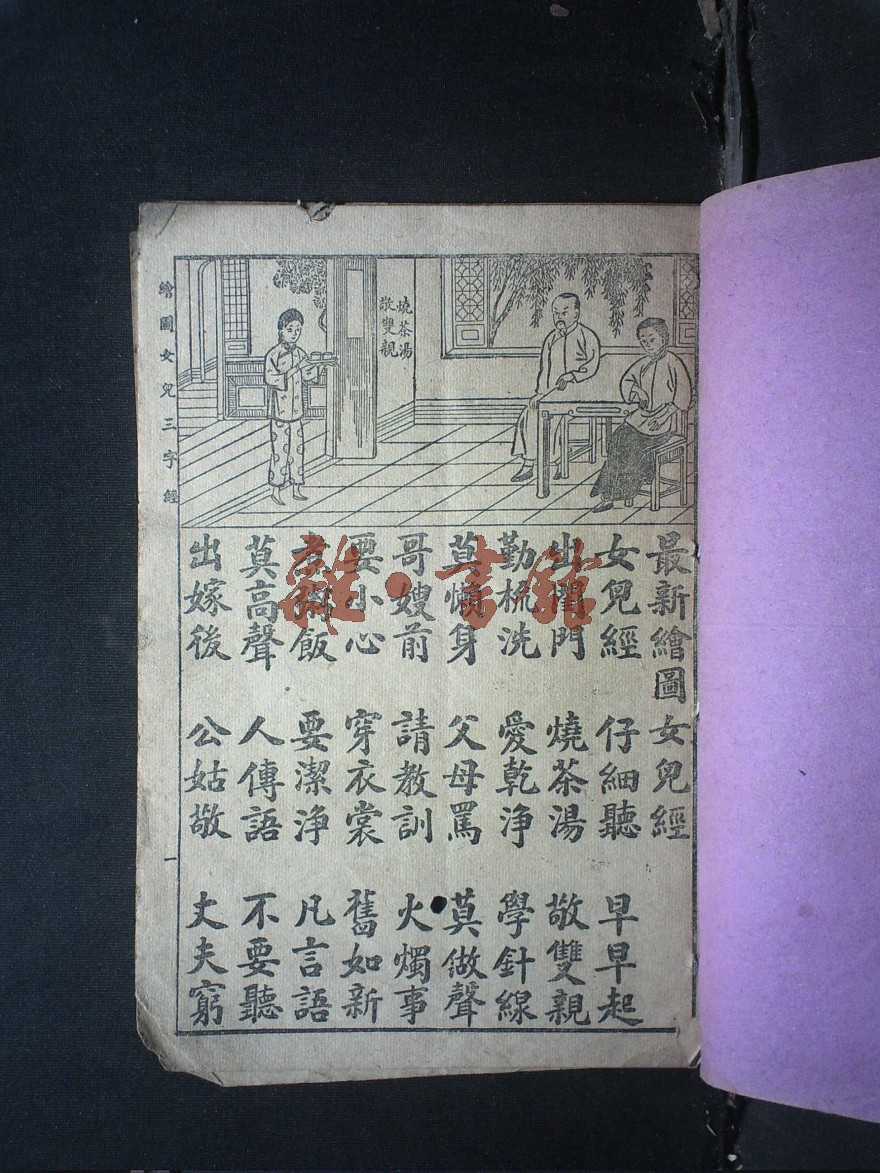 繪圖女兒三字經
燒茶湯
敬雙親
最新繪圖女兒經
女兒經 仔細聽 早早起
出閨門 燒茶湯 敬雙親
勤梳洗 愛乾淨 學針線
莫懶身 父母罵 莫做聲
哥嫂前 請教訓 火燭事
要小心 穿衣裳 舊如新
飯 要潔淨 凡言語
莫高聲 人傳語 不要聽
出嫁後 公姑敬 丈夫窮
一
雜·書館